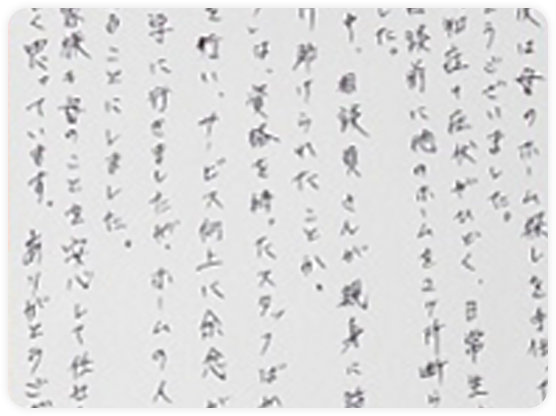 度は母のホーム探しを手伝
うございました。
知症の症状がひどく、日常生
談前に他のホームを2ヶ所断ら
した。
中、相談員さんが親身に
助けられたことか。
ンは、資格を持ったスタッフばか
を行い、サービス向上に余念が
学に行きましたが、ホームの人
ることにしました。
家族も母のことを安心して任せ
く思っています。ありがとうござ